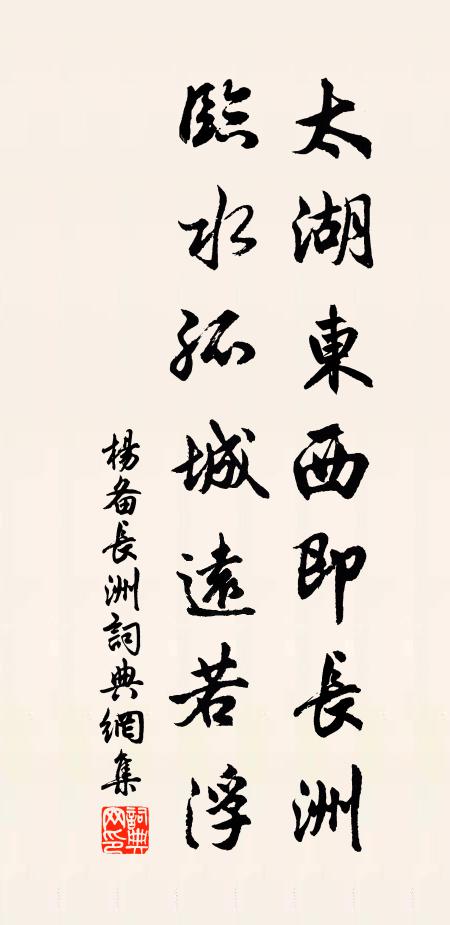 太湖東西即長洲
臨水孤城遠若浮
楊备長洲詞典網集
詞典
网印